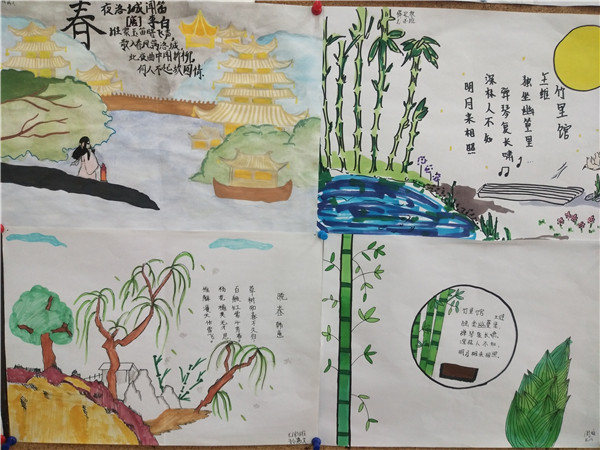 春
夜洛城闻笛
[唐] 李白
谁家玉笛暗飞声,
散入春风满洛城,
此夜曲中闻折柳,
何人不起故园情.
竹里馆
王维
独坐幽篁里
弹琴复长啸
深林人不知
明月来相照
晚春 韩愈
草树知春不久归
百般红紫斗芳菲
杨花榆荚无才思
惟解漫天作雪飞
竹里馆
独坐幽篁里,
弹琴复长啸.
深林人不知,
明月来相照.